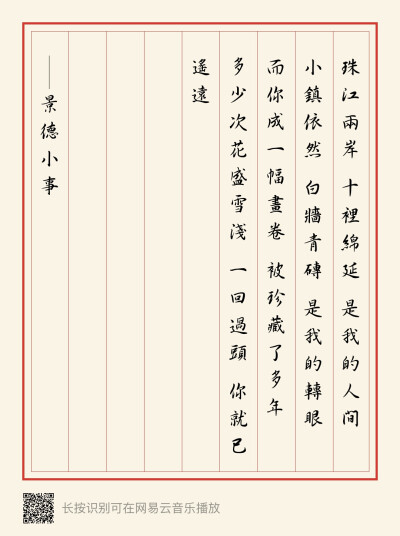 珠江兩岸 十裡綿延 是我的人间
小鎮依然 白牆青磚 是我的轉眼
而你成一幅畫卷 被珍藏了多年
多少次花盛雪淺 一回過頭 你就已
遙遠
——景德小事
长按识别可在网易云音乐播放